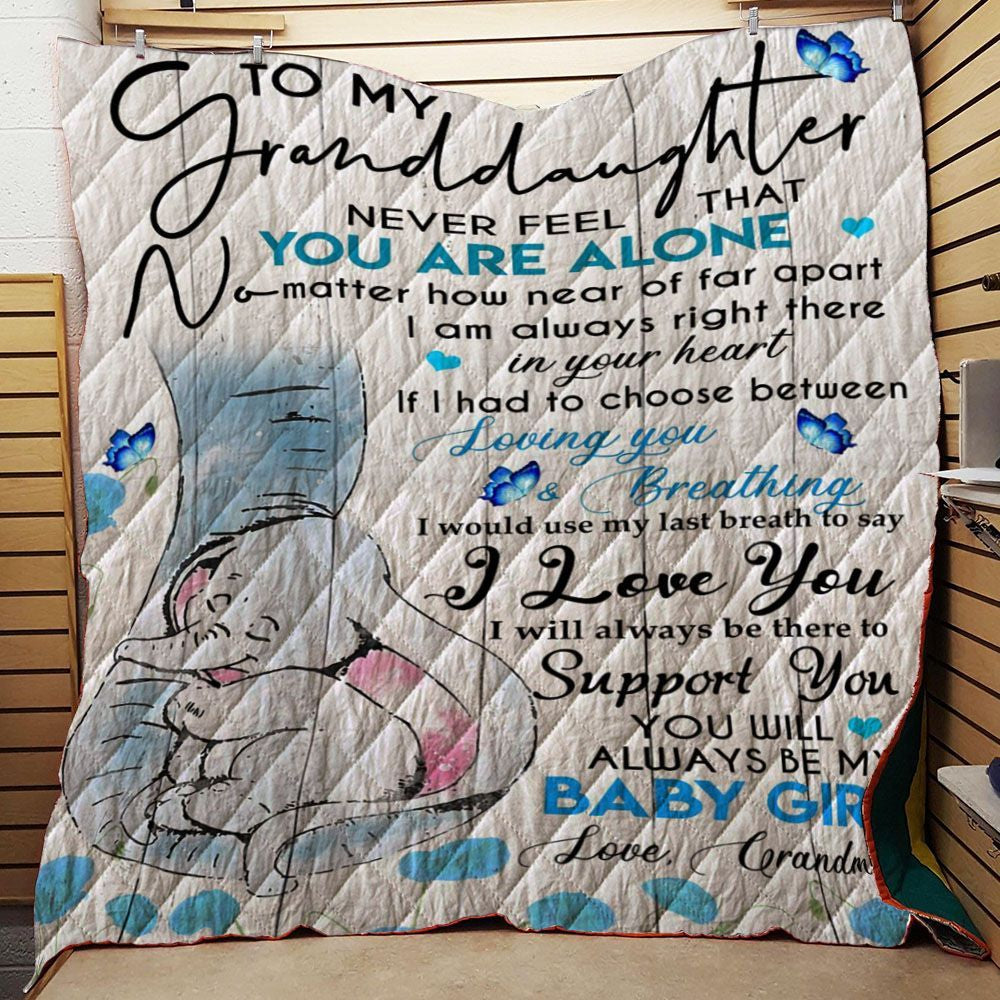 TO MY
Granddaughter
NEVER FEEL THAT
YOU ARE ALONE
No matter how near of far apart
I am always right there
in your heart
If I had to choose between
Loving you
& Breathing
I would use my last breath to say
I Love You
I will always be there to
Support You
YOU WILL
ALWAYS BE MY
BABY GIR
Love, Grandm